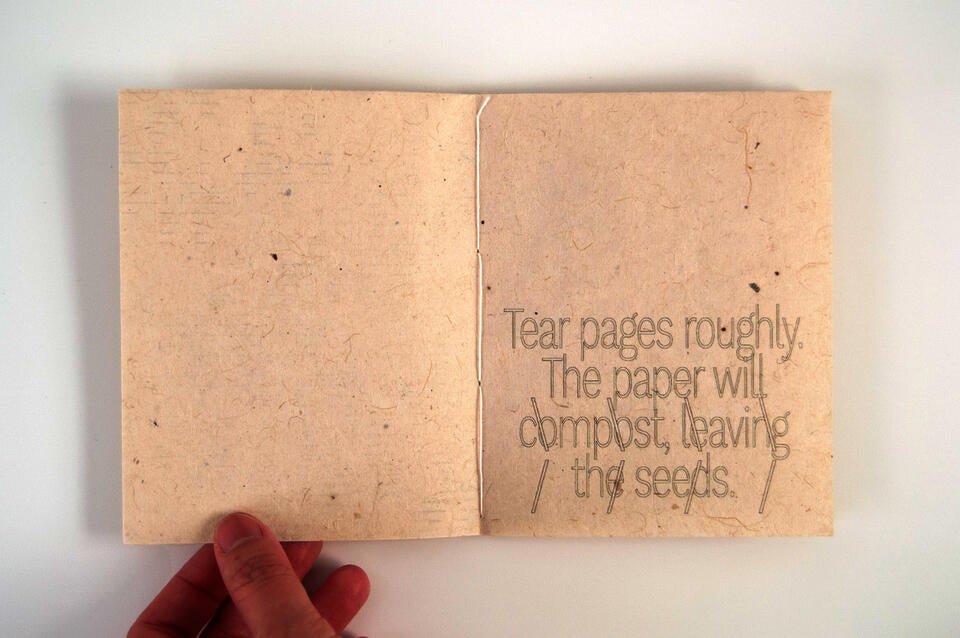 Tear pages roughly.
The paper will
compost, leaving
the seeds.